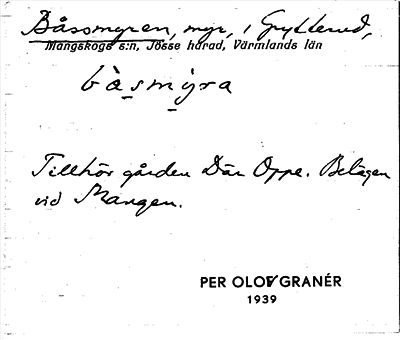 Båssmyren, myr, i Grytterud,
Mangskogs s:n, Jösse härad, Värmlands län
bàsmýra
Tillhör gården Där Oppe. Belägen
vid Mangen.
PER OLOV GRANÉR
1939